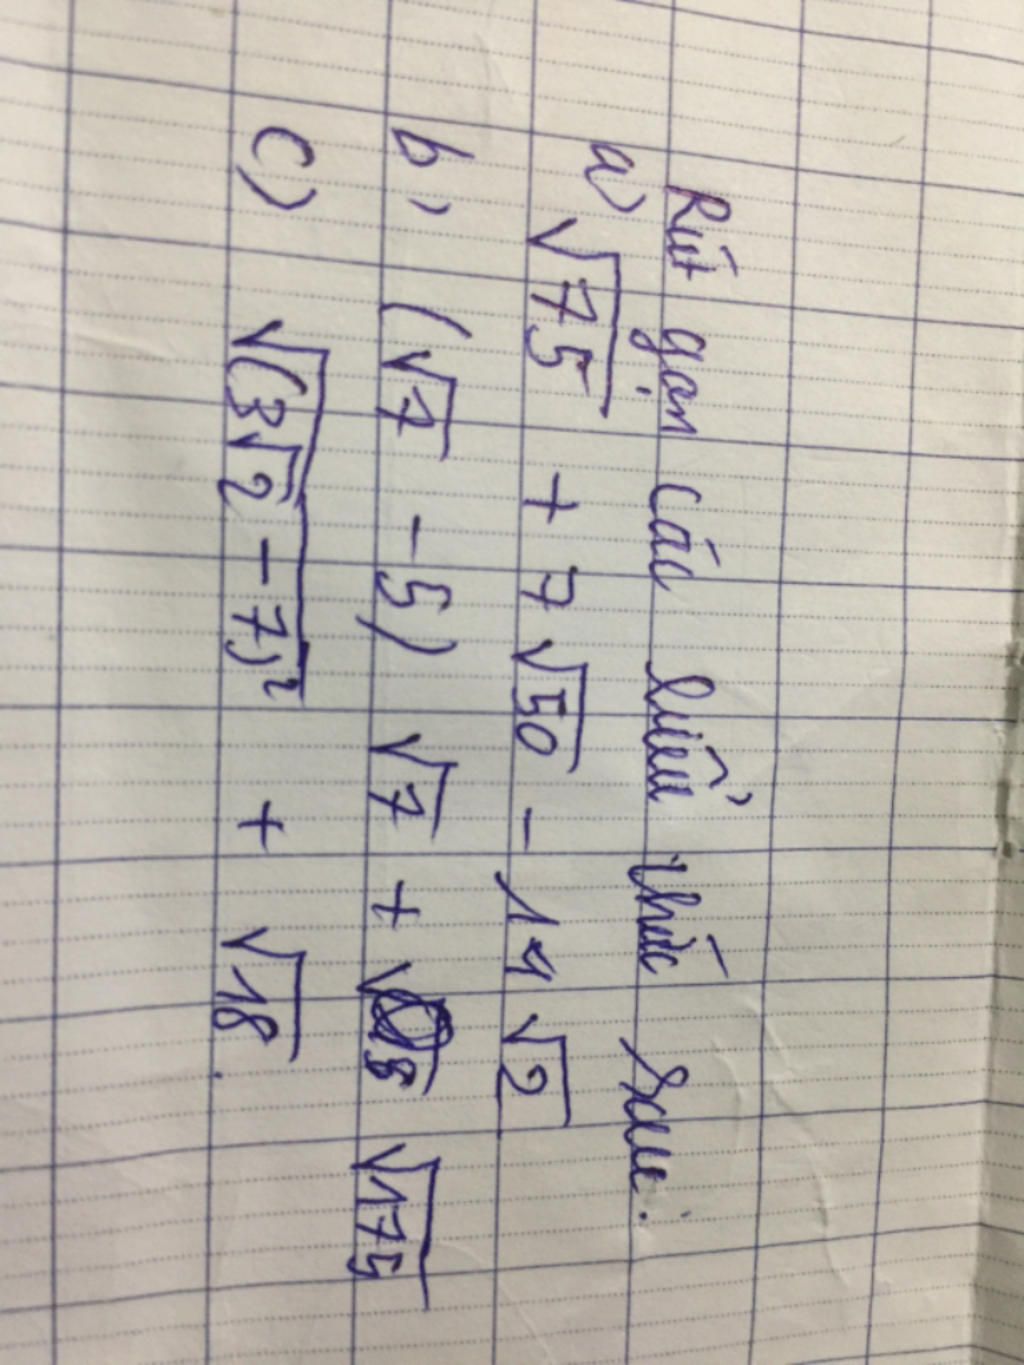 Rút gọn các biểu thức sau:
a) √75 + 7√50 - 14√2
b) (√7 - 5) √7 + √175
c) √(3√2 - 7)² + √18.